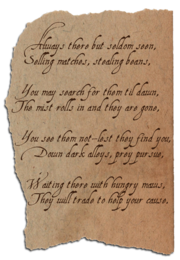 Always there but seldom seen,
Selling matches, stealing beans,
You may search for them til dawn,
The mist rolls in and they are gone,
You see them not-lest they find you,
Down dark alleys, prey pursue,
Waiting there with hungry maws,
They will trade to help your cause.